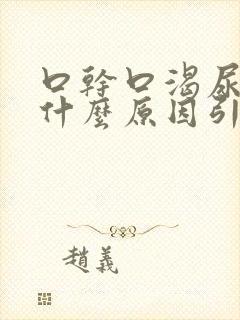 口幹口渴尿
什麼原因引
趙義